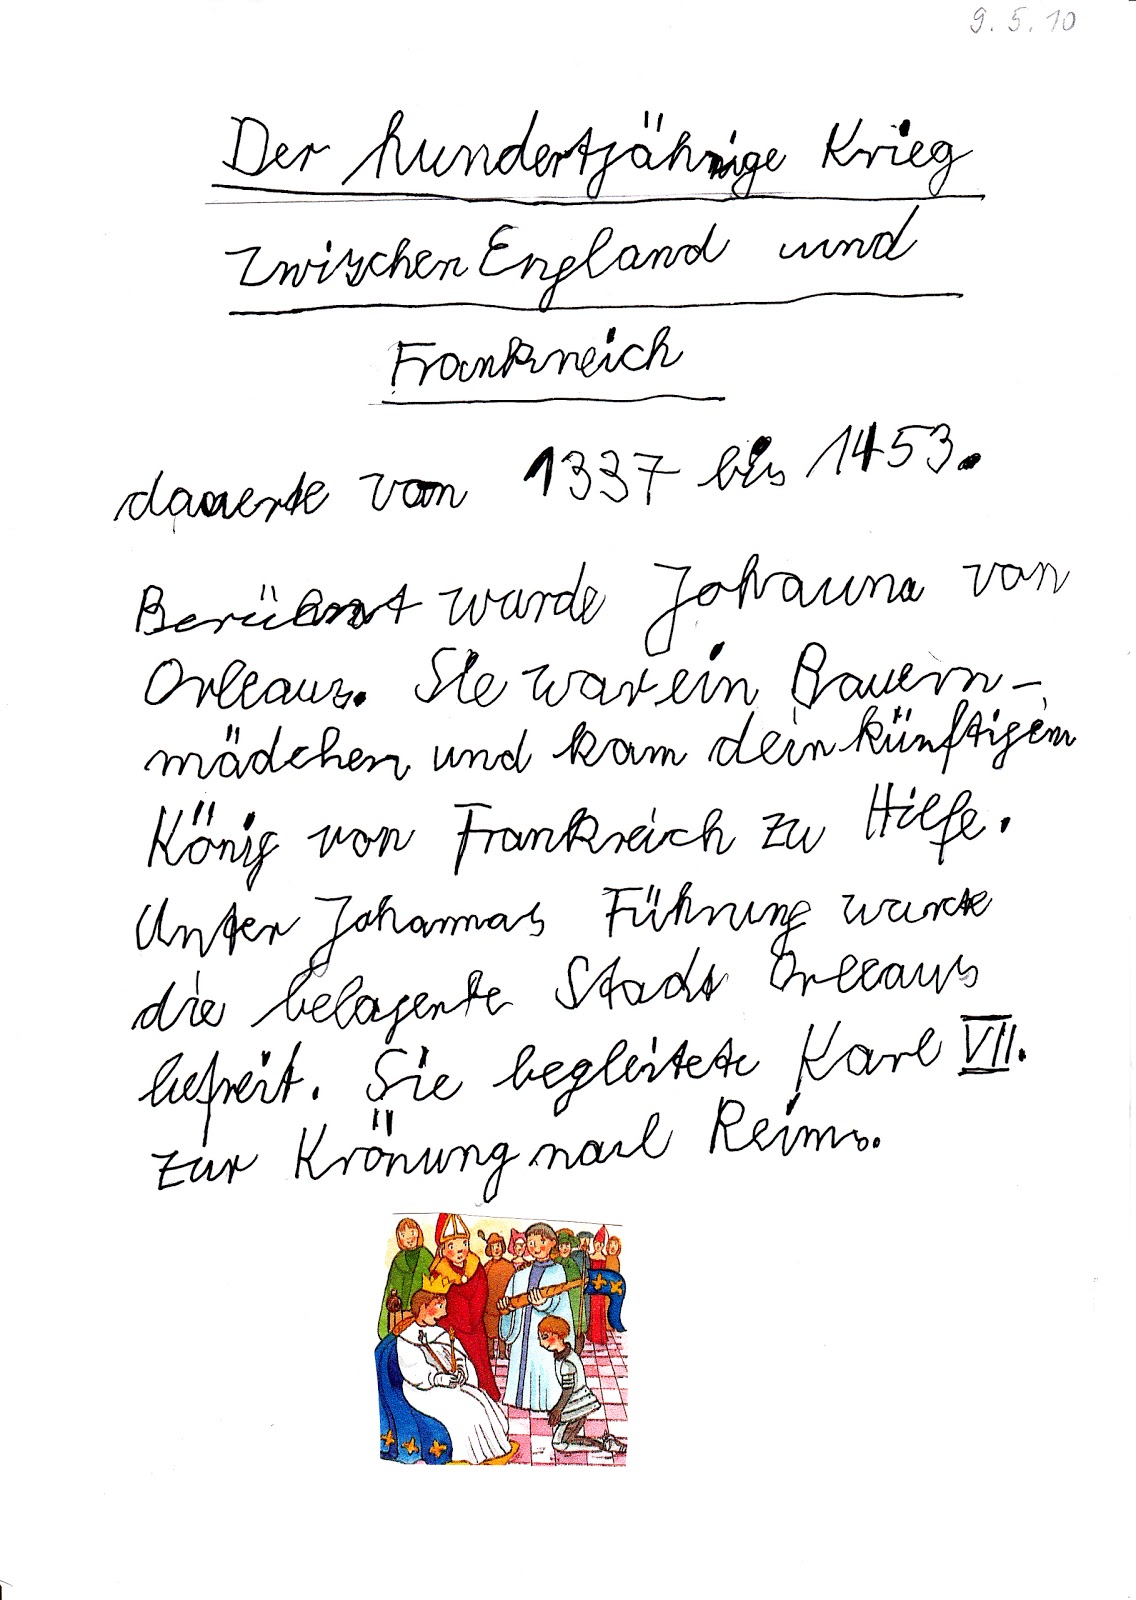 9.5.10
Der hundertjährige Krieg
zwischen England und
Frankreich
dauerte von 1337 bis 1453.
Berühmt wurde Johanna von
Orleans. Sie war ein Bauern-
mädchen und kam dem künftigem
König von Frankreich zu Hilfe.
Unter Johannas Führung wurde
die belagerte Stadt Orleans
befreit. Sie begleitete Karl VII.
zur Krönung nach Reims.